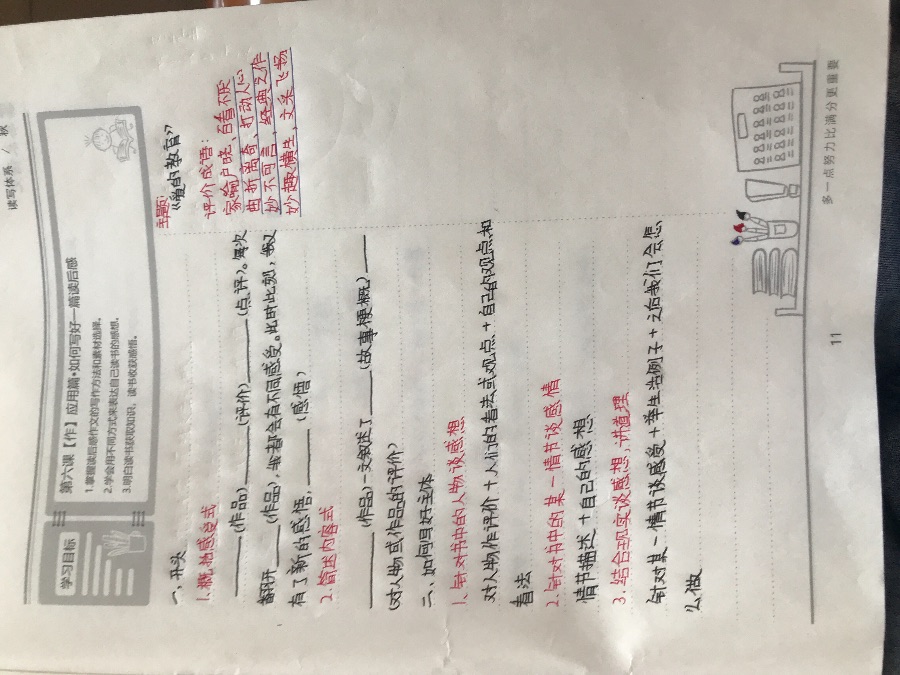 读写体系 / 秋
学习目标
第六课【作】应用篇•如何写好一篇读后感
1.掌握读后感作文的写作方法和素材选择。
2.学会用不同方式来表达自己读书的感想。
3.明白读书获取知识，读书收获感悟。
一、开头
1.概括感受式
____(作品)____(评价)____(点评)。每次
翻开____(作品)，我都会有不同感受。此时此刻，我又
有了新的感悟，____(感悟)
2.简述内容式
____(作品)一文叙述了____(故事梗概)____
(对人物或作品的评价)
二、如何写好主体
1.针对书中的人物谈感想
对人物作评价+人们的看法或观点+自己的观点和
看法
2.针对书中的某一情节谈感情
情节描述+自己的感想
3.结合现实谈感想，讲道理
针对某一情节谈感受+举生活例子+之后我们会怎
么做
主题：
《爱的教育》
评价成语：
家喻户晓、百看不厌
曲折离奇、打动人心
妙不可言、经典之作
妙趣横生、文采飞扬
11
多一点努力比满分更重要